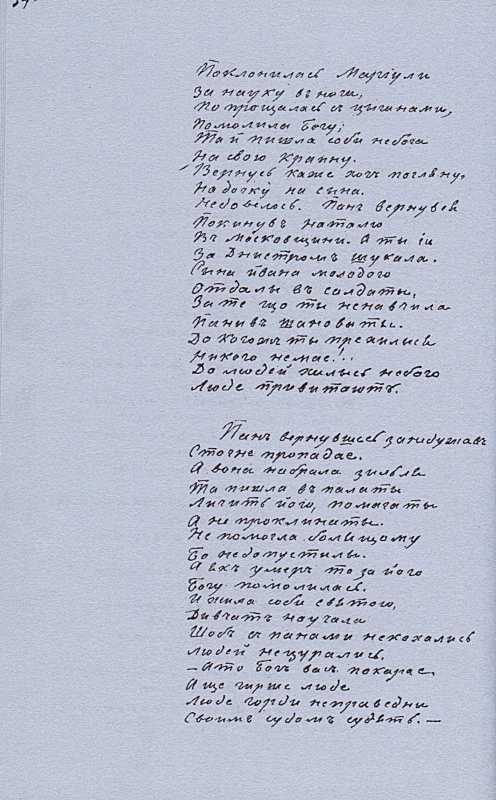 Поклонилась Маріули
За науку въ ноги,
Попрощалась съ цыганами,
Помолила Богу;
Та й пишла соби небога
На свою краину.
Вернусь каже хочъ погляну,
На дочку на сына.
Недовелось. Панъ вернувся
Покинувъ Наталю
Въ Московщини. А ты іи
За Днистромъ шукала.
Сына йвана молодого
Отдалы въ солдаты,
За те що ты ненавчила
Панивъ шановаты.
До когожъ ты прехилысь
Никого немае!..
До людей хилысь небого
Люде привитаютъ.
Панъ вернувшысь занедужавъ
Стогне пропадае.
А вона набрала зилья
Та пишла въ палаты
Личить його, помагаты
А не проклинаты.
Не помогла болящому
Бо недопустилы.
А якъ умеръ то за його
Богу помолилась.
И жила соби святою,
Дивчатъ научала
Шобъ съ панами некохались
Людей нецурались.
— Ато Богъ васъ покарае,
А ще гирше люде
Люде горди неправедни
Своимъ судомъ судять. —